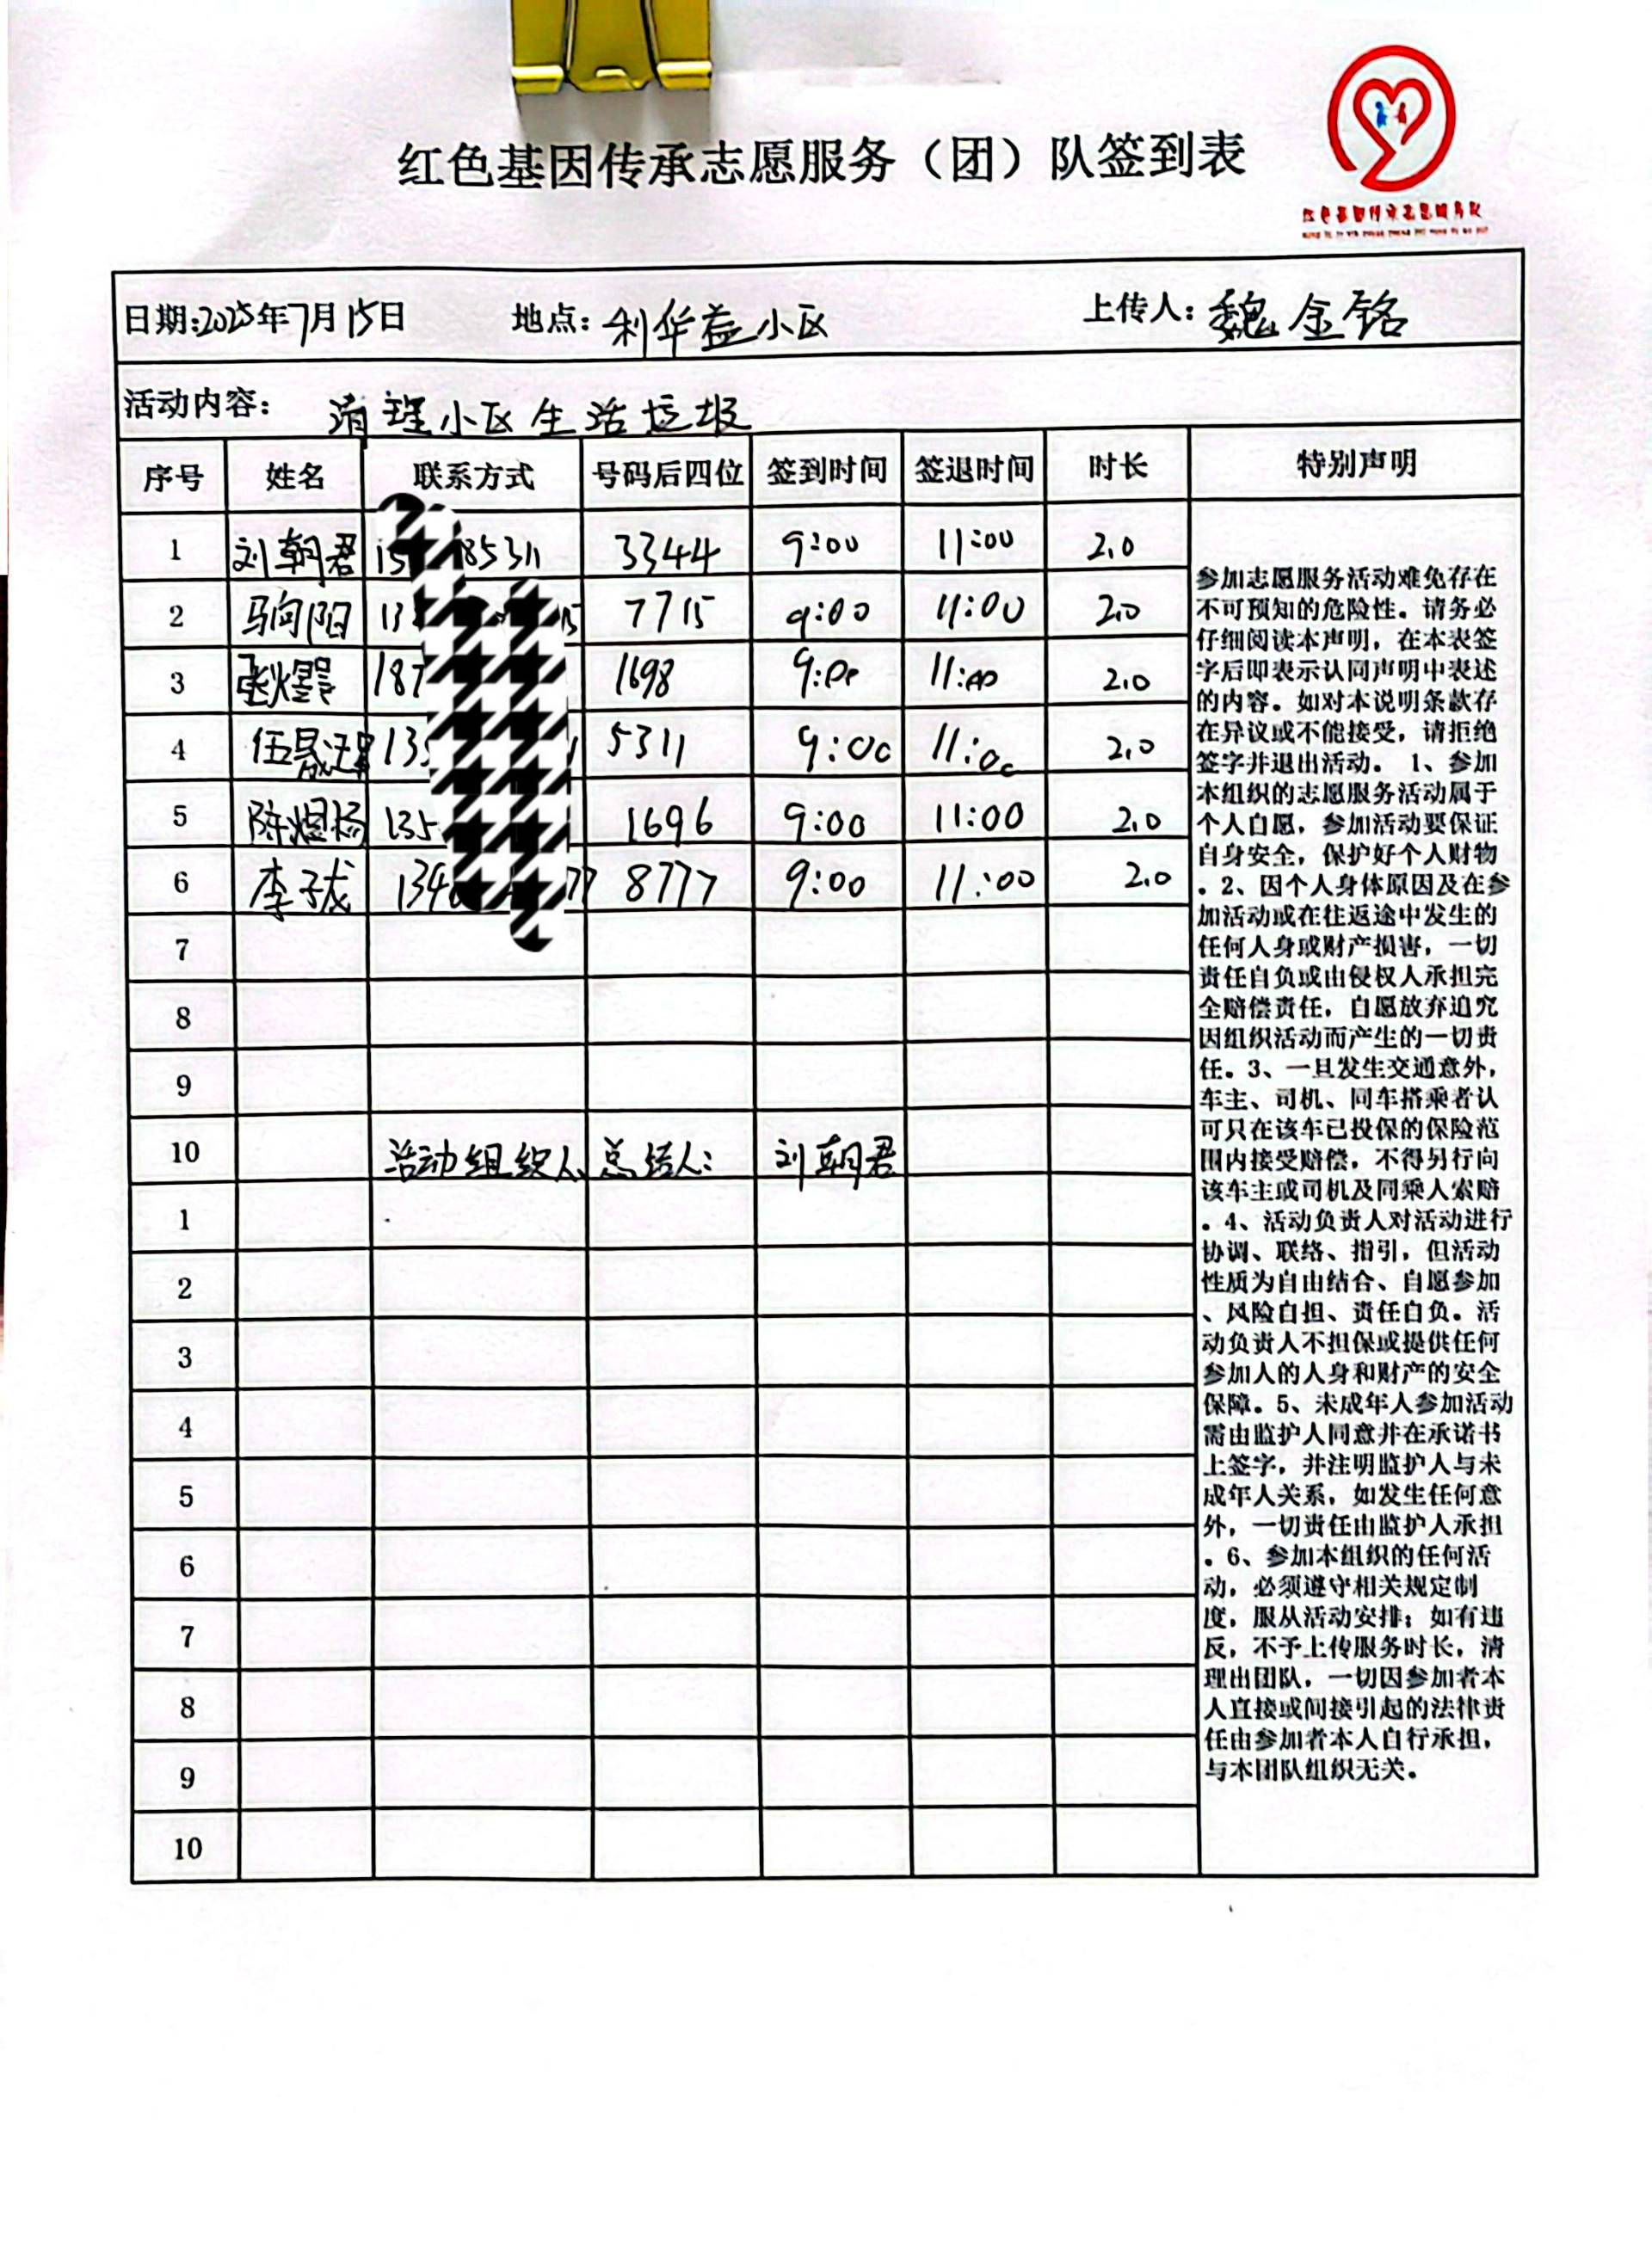 红色基因传承志愿服务（团）队签到表
红色基因传承志愿服务队
日期:2025年7月15日 地点:利华益小区 上传人:魏金铭
活动内容: 清理小区生活垃圾
序号 姓名 联系方式 号码后四位 签到时间 签退时间 时长 特别声明
1 刘朝君 15 85311 3344 9:00 11:00 2.0
2 马向阳 13 15 7715 9:00 11:00 2.0
3 张 187 1698 9:00 11:00 2.0
4 伍 135 1 5311 9:00 11:00 2.0
5 陈煜扬 135 1696 9:00 11:00 2.0
6 李子龙 134 77 8777 9:00 11:00 2.0
7
8
9
10 活动组织人 总结人: 刘朝君
1
2
3
4
5
6
7
8
9
10
参加志愿服务活动难免存在
不可预知的危险性。请务必
仔细阅读本声明，在本表签
字后即表示认同声明中表述
的内容。如对本说明条款存
在异议或不能接受，请拒绝
签字并退出活动。 1、参加
本组织的志愿服务活动属于
个人自愿，参加活动要保证
自身安全，保护好个人财物
。2、因个人身体原因及在参
加活动或在往返途中发生的
任何人身或财产损害，一切
责任自负或由侵权人承担完
全赔偿责任，自愿放弃追究
因组织活动而产生的一切责
任。3、一旦发生交通意外，
车主、司机、同车搭乘者认
可只在该车已投保的保险范
围内接受赔偿，不得另行向
该车主或司机及同乘人索赔
。4、活动负责人对活动进行
协调、联络、指引，但活动
性质为自由结合、自愿参加
、风险自担、责任自负。活
动负责人不担保或提供任何
参加人的人身和财产的安全
保障。5、未成年人参加活动
需由监护人同意并在承诺书
上签字，并注明监护人与未
成年人关系，如发生任何意
外，一切责任由监护人承担
。6、参加本组织的任何活
动，必须遵守相关规定制
度，服从活动安排；如有违
反，不予上传服务时长，清
理出团队，一切因参加者本
人直接或间接引起的法律责
任由参加者本人自行承担，
与本团队组织无关。